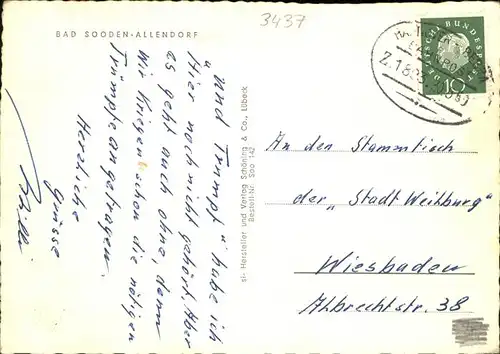 3437
BAD SOODEN-ALLENDORF
„und Trumpf" habe ich
Hier noch nicht gehört. Aber
es geht auch ohne, denn
Wir kriegen schon die nötigen
Trümpfe angetragen.
Herzliche
Grüsse
Willi
sl- Hersteller und Verlag Schöning & Co., Lübeck
Bestell-Nr. Soo 142
DEUTSCHE BUNDESPOST
10
BAHNPOST
An den Stammtisch
der „Stadt Weilburg"
Wiesbaden
Albrechtstr. 38